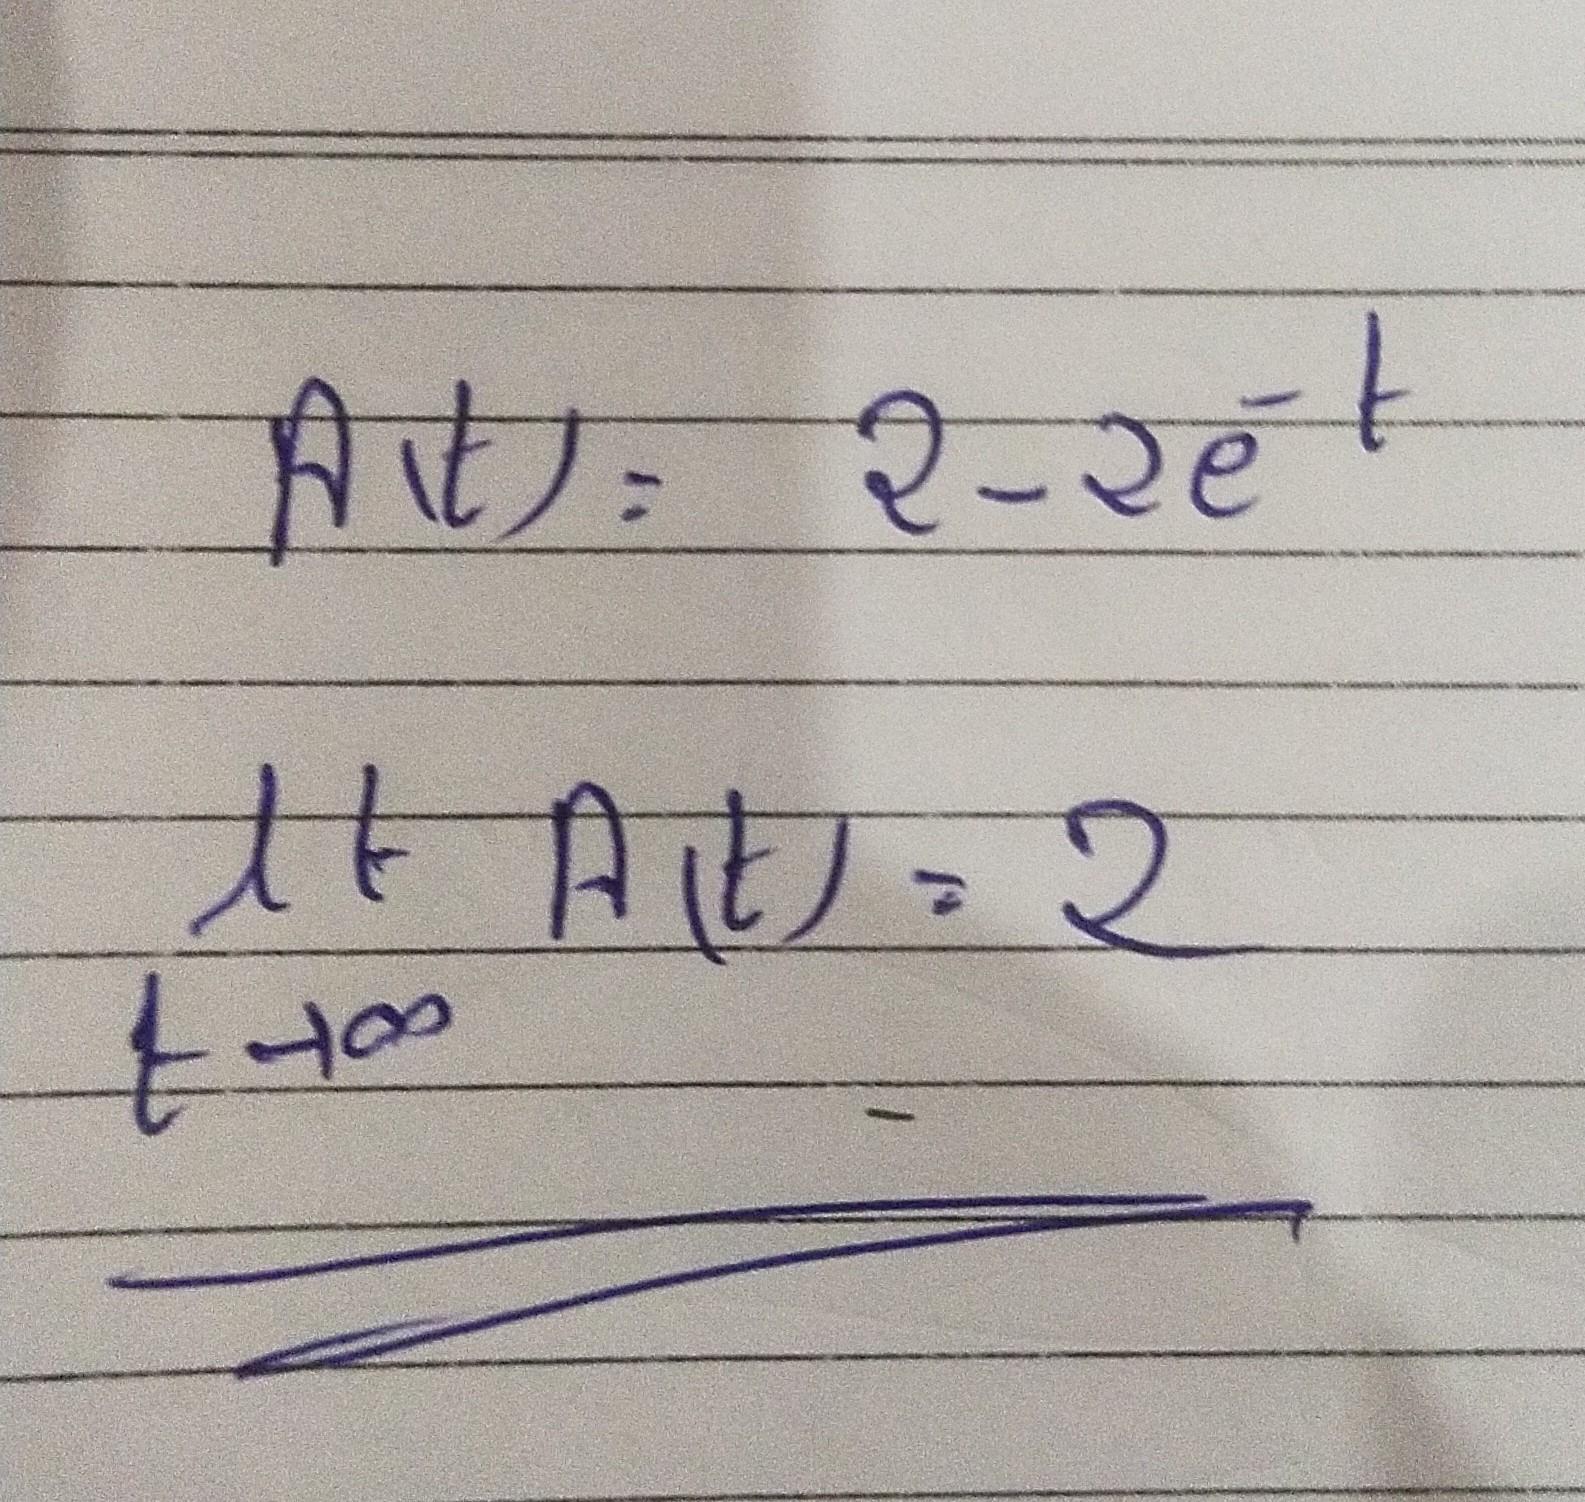 A(t) = 2 - 2e^-t
lt A(t) = 2
t→∞